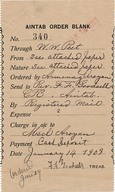 AINTAB ORDER BLANK
No. 340
Through W.W. Peet
From See attached paper
Nature See attached paper
Ordered by
Send to Rev. F. F. Goodsell
Aintab
By Registered Mail
Expense
Charge in a/c to
Med. Aroyan
Payment Cash deposit
Date January 14, 1909.
TREAS.